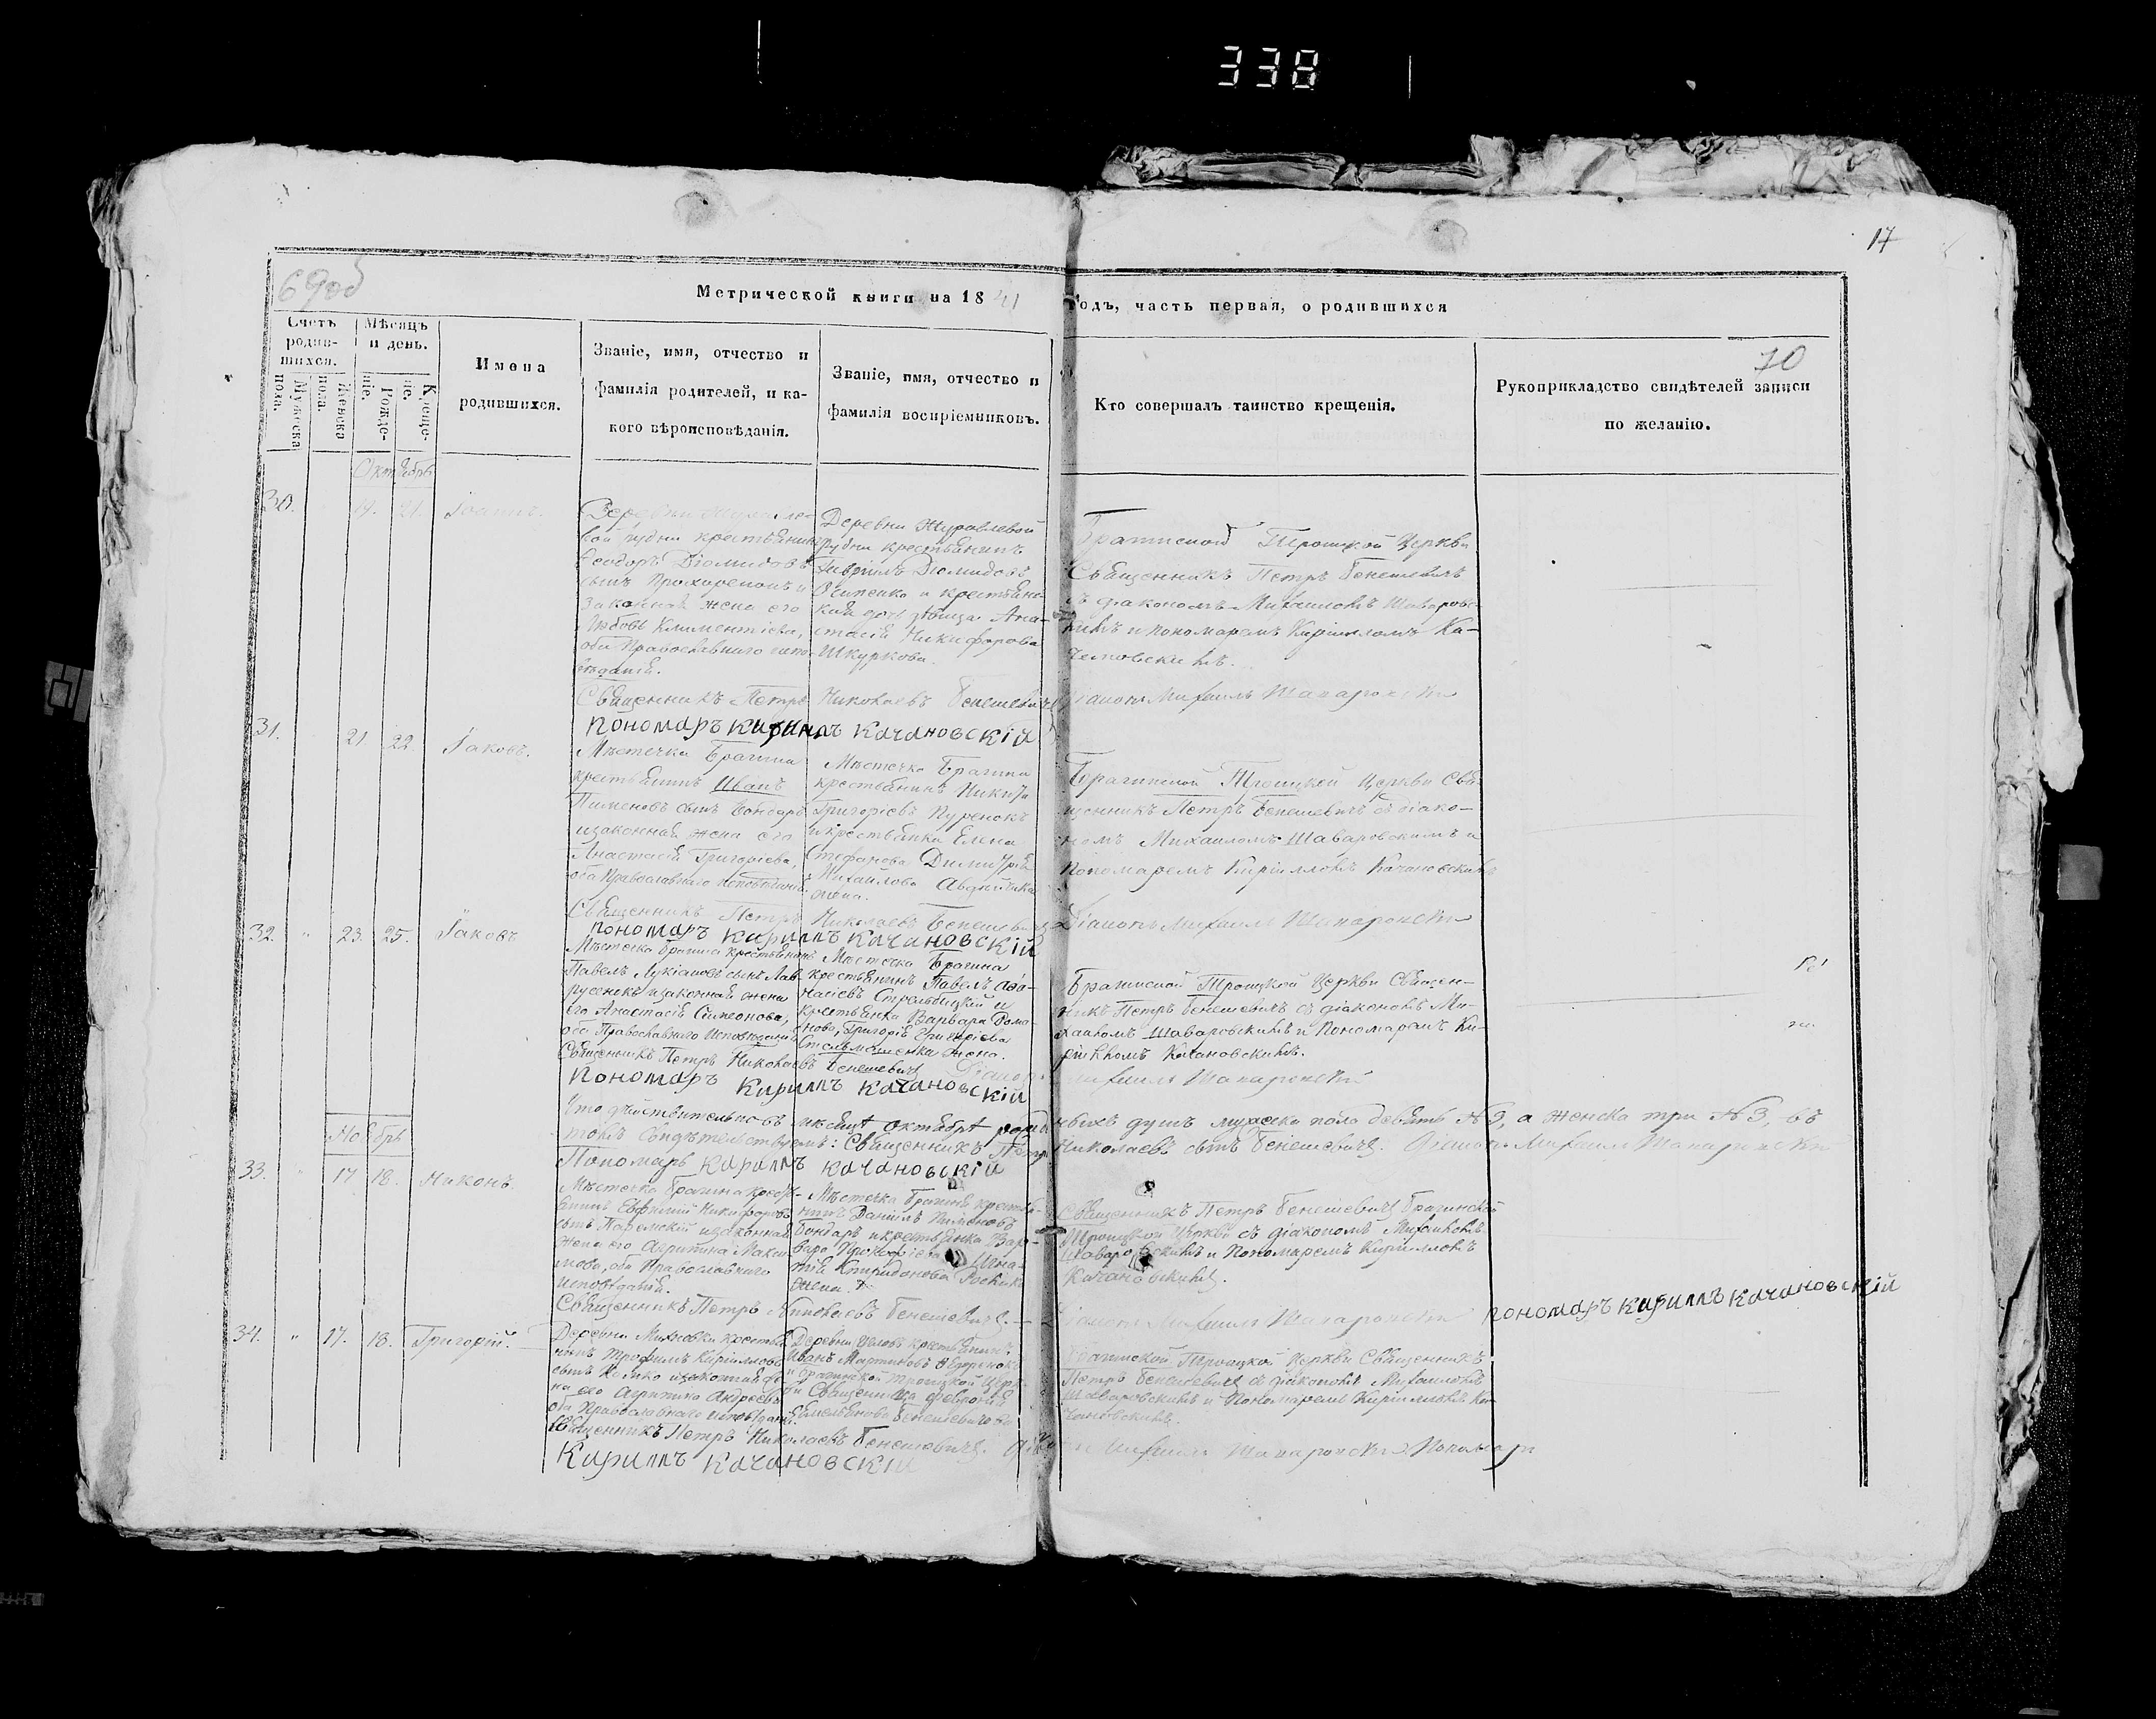 338
17
69об
Метрической книги на 1841 годъ, часть первая, о родившихся
70
Счетъ родив-шихся.
Мужеска пола.
Женска пола.
Мѣсяцъ и день.
Рожде-ніе.
Креще-ніе.
Имена
родившихся.
Званіе, имя, отчество и
фамилія родителей, и ка-
кого вѣроисповѣданія.
Званіе, имя, отчество и
фамилія воспріемниковъ.
Кто совершалъ таинство крещенія.
Рукоприкладство свидѣтелей записи
по желанію.
Октябрь
30. 19. 21. Іоаннъ.
Деревни Журавле-
вой рудни крестьянинъ
Ѳеодоръ Діомидовъ
сынъ и
законная жена его
Любовь Климентіева,
оба Православнаго испо-
вѣданія.
Деревни Журавлевой
рудни крестьянинъ
Гавріилъ Діомидовъ
и крестьянс-
кая дочь дѣвица Ана-
стасія Никифорова
Шкуркова.
Брагинской Троицкой Церкви
Священникъ Петръ Бенешевичъ
съ діакономъ Михаиломъ Шаваровс-
кимъ и пономаремъ Кирилломъ Ка-
чановскимъ.
Священникъ Петръ Николаевъ Бенешевичъ Діаконъ Михаилъ Шаваровскій
Пономаръ Кириллъ Качановскій
31. 21. 22 Іаковъ.
Мѣстечка Брагина
крестьянинъ Иванъ
Пименовъ сынъ Бондаръ
и законная жена его
Анастасія Григоріева,
оба Православнаго исповѣданія.
Мѣстечка Брагина
крестьянинъ Никита
Григоріевъ Куренокъ
и крестьянка Елена
Стефанова Димитрія
Михайлова
жена.
Брагинской Троицкой Церкви Свя-
щенникъ Петръ Бенешевичъ съ діако-
номъ Михаиломъ Шаваровскимъ и
Пономаремъ Кирилломъ Качановскимъ
Священникъ Петръ Николаевъ Бенешевичъ Діаконъ Михаилъ Шаваровскій
Пономаръ Кириллъ Качановскій
32. " 23. 25. Іаковъ
Мѣстечка Брагина крестьянинъ
Павелъ Лукіановъ сынъ Лав-
русенокъ и законная жена
его Анастасія Симеонова,
оба Православнаго Исповѣданія
Мѣстечка Брагина
крестьянинъ Павелъ Аѳа-
насіевъ Стрельбицкій и
крестьянка Варвара Рома-
нова, Григорія Григоріева
жена.
Брагинской Троицкой Церкви Священ-
никъ Петръ Бенешевичъ съ діакономъ Ми-
хаиломъ Шаваровскимъ и Пономаремъ Ки-
рилломъ Качановскимъ.
Священникъ Петръ Николаевъ Бенешевичъ Діаконъ Михаилъ Шаваровскій
Пономаръ Кириллъ Качановскій
Что дѣйствительно въ мѣсяцѣ октябрѣ душъ мужеска пола девять №9, а женска три №3, въ
томъ свидѣтельствуемъ: Священникъ Петръ Николаевъ сынъ Бенешевичъ. Діаконъ Михаилъ Шаваровскій
Пономаръ Кириллъ Качановскій
Ноябрь
33. " 17 18. Никонъ
Мѣстечка Брагина кресть-
янинъ Евфимій Никифоровъ
сынъ и законная
жена его Агрипина Макси-
мова, оба Православнаго
исповѣданія.
Мѣстечка Брагина крестья-
нинъ Даніилъ Пименовъ
Бондаръ и крестьянка Вар-
вара Прокофіева Игна-
тія Спиридонова
жена.
Священникъ Петръ Бенешевичъ Брагинской
Троицкой Церкви съ діакономъ Михаиломъ
Шаваровскимъ и Пономаремъ Кирилломъ
Качановскимъ.
Священникъ Петръ Николаевъ Бенешевичъ. Діаконъ Михаилъ Шаваровскій Пономаръ Кириллъ Качановскій
34. " 17. 18. Григорій.
Деревни Михновки крестья-
нинъ Трофимъ Кирилловъ
сынъ и законная же-
на его Агрипина Андреева
оба Православнаго исповѣданія.
Деревни крестьянинъ
Иванъ Мартиновъ
и Брагинской Троицкой Церк-
ви Священника Феврония
Емельянова Бенешевичева
Брагинской Троицкой Церкви Священникъ
Петръ Бенешевичъ съ діакономъ Михаиломъ
Шаваровскимъ и Пономаремъ Кирилломъ Ка-
чановскимъ.
Священникъ Петръ Николаевъ Бенешевичъ. Діаконъ Михаилъ Шаваровскій Пономаръ
Кириллъ Качановскій